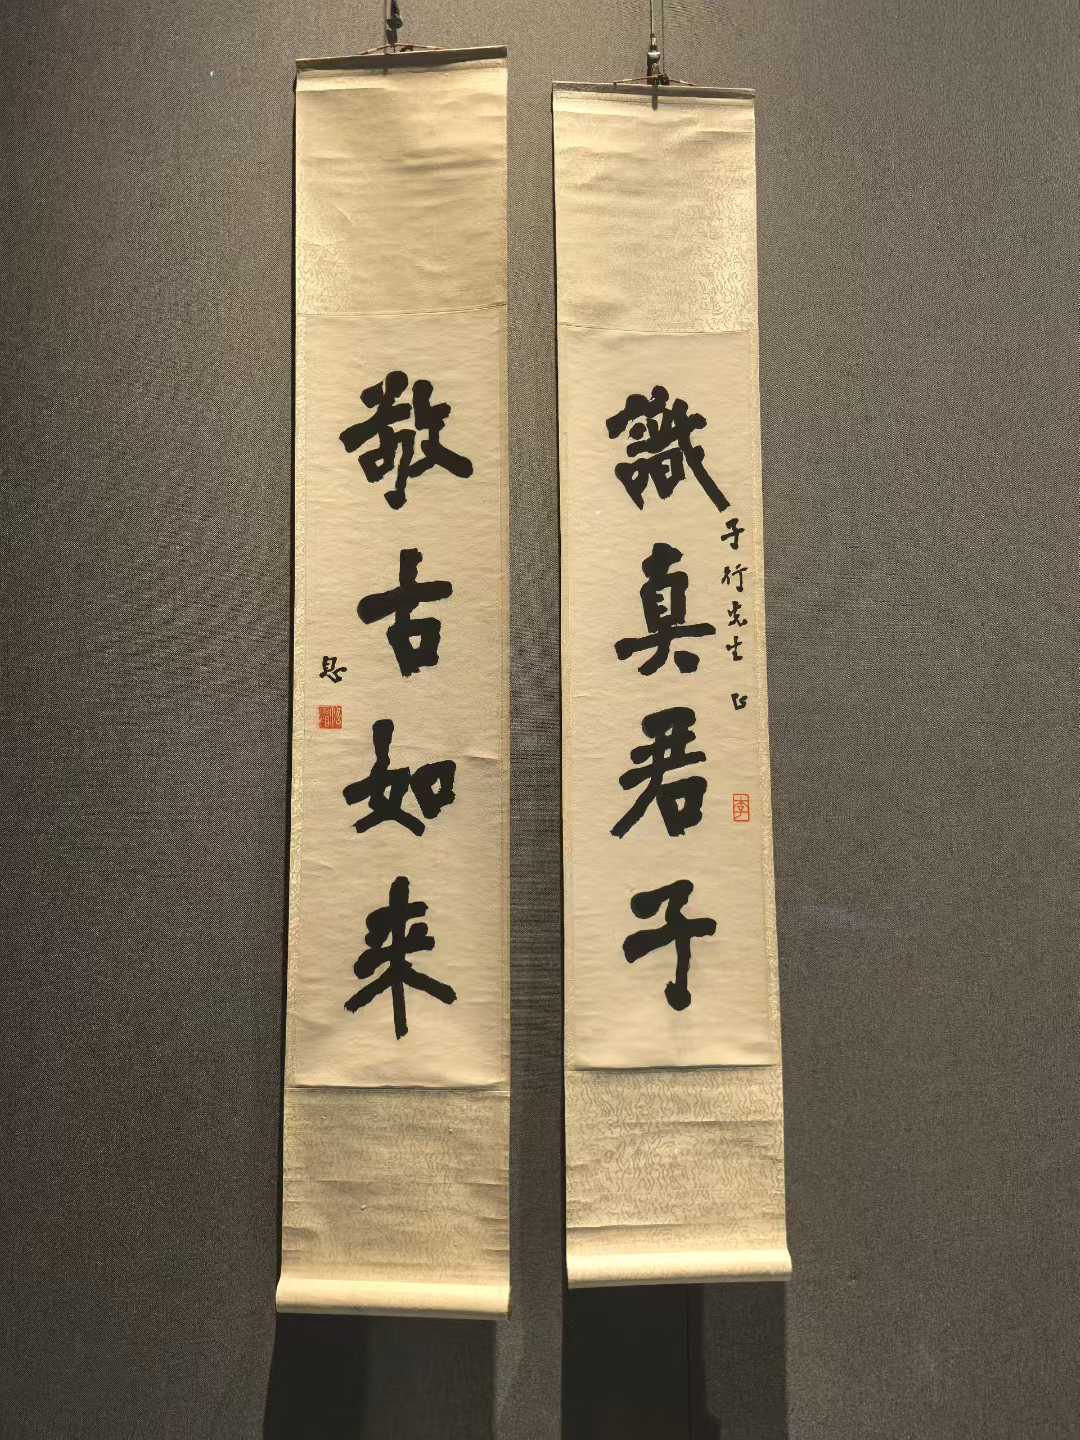 識真君子
子行先生正
李
敬古如来
息